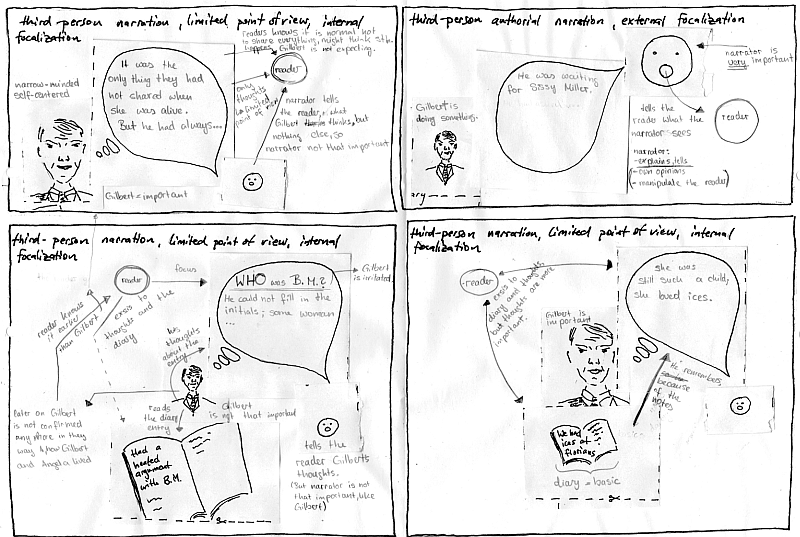 third-person narration, limited point of view, internal
focalization
narrow-minded
self-centered
It was the
only thing they had
not shared when
she was alive.
But he had always...
Gilbert = important
readers knows it is normal not
to share everything, might think
Gilbert is not expecting.
reader
only
thoughts
limited
point of view
narrator tells
the reader what
Gilbert thinks, but
nothing else, so
narrator not that important
third-person authorial narration, external focalization
Gilbert is
doing something.
ary
He was waiting
for Sissy Miller.
narrator is
very important
tells the
reader what the
narrator sees
reader
narrator:
-explains, tells
- own opinions
- manipulate the reader)
third-person narration, limited point of view, internal
focalization
reader
focus
reader knows
it earlier
than Gilbert
exsis to
thoughts and the
diary
WHO was B.M.?
He could not fill in the
initials; some woman
...
Gilbert
is irritated
his
thoughts
about the
entry
reads
the diary
entry
Gilbert
is not that important
Later on Gilbert
is not confirmed
any more in they
way how Gilbert
and Angela lived
Had a
heated
argument
with B.M.
tells the
reader Gilberts
thoughts.
(But narrator is not
that important, like
Gilbert)
third-person narration, limited point of view, internal
focalization
reader
exsis to
diary and thoughts,
but thoughts are more
important.
Gilbert is
important
she was
still such a child;
she loved ices.
He remembers,
because
of the
notes
We had
ices at
florians
diary = basic